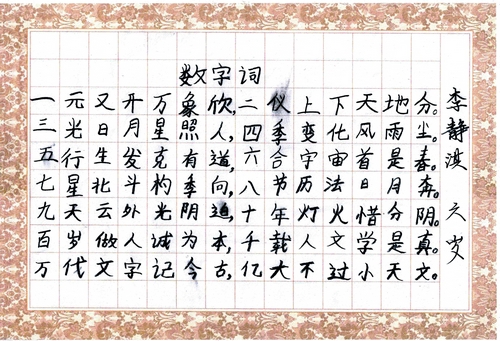 数字词
一元又开万象欣，二仪上下天地分。
三光日月星照人，四季变化风雨尘。
五行生发克有道，六合宇宙首是春。
七星北斗杓季向，八节历法日月奔。
九天云外光阴迫，十年灯火惜分阴。
百岁做人诚为本，千载人文学是真。
万代文字记今古，亿大不过小天文。
李静滨 六岁